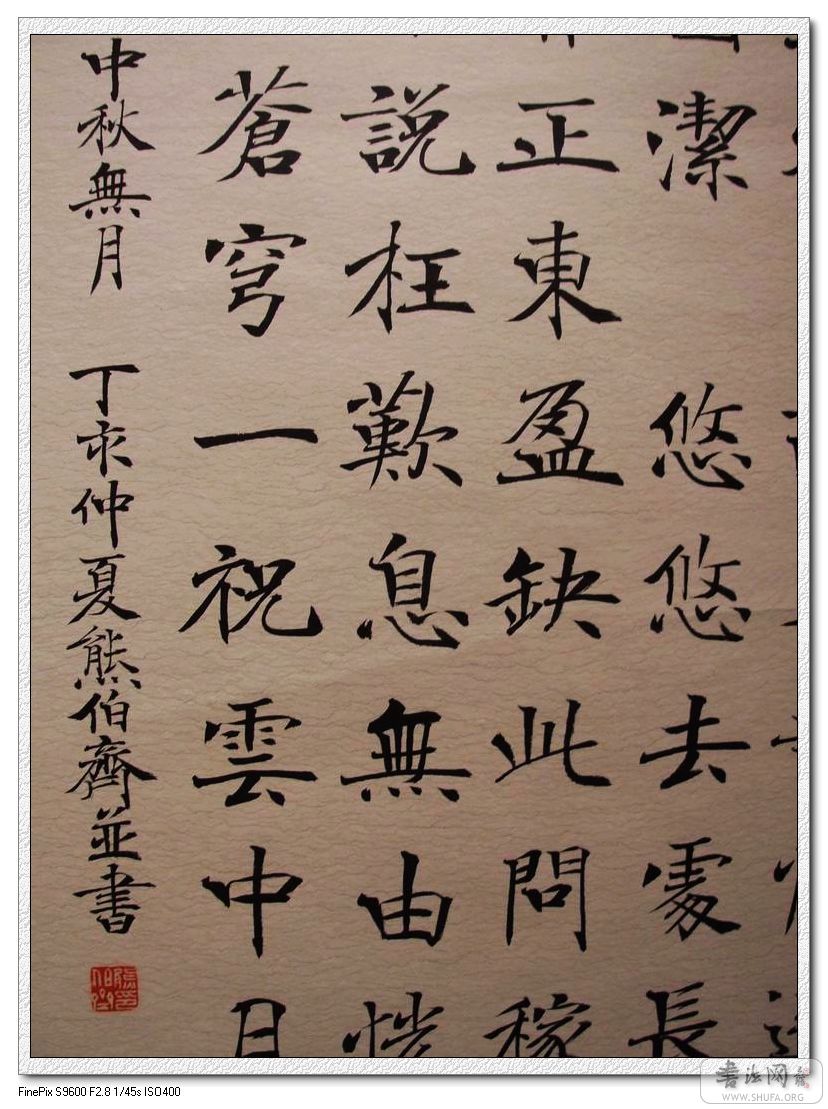 潔 悠悠去處長
正東盈缺此問稼
説枉歎息無由恍
蒼穹一祝雲中月
中秋無月 丁亥仲夏熊伯齊並書
FinePix S9600 F2.8 1/45s ISO400
书法网
WWW.SHUFA.ORG